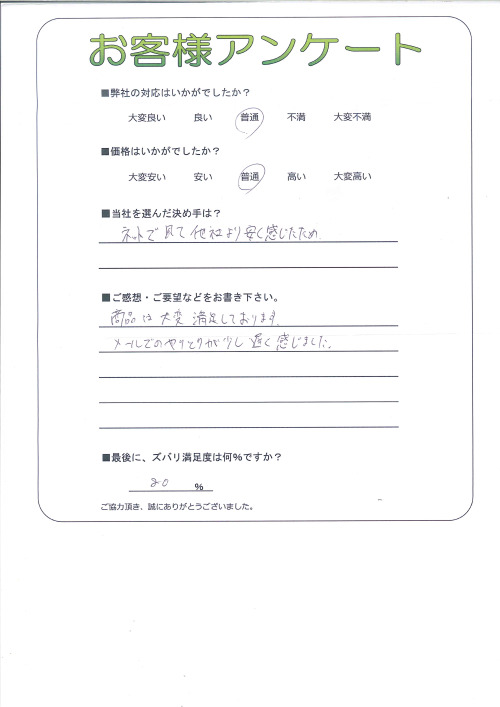 お客様アンケート
■弊社の対応はいかがでしたか？
大変良い 良い 普通 不満 大変不満
■価格はいかがでしたか？
大変安い 安い 普通 高い 大変高い
■当社を選んだ決め手は？
ネットで見て他社より安く感じたため
■ご感想・ご要望などをお書き下さい。
商品は大変満足しております。
メールでのやりとりが少し遅く感じました。
■最後に、ズバリ満足度は何%ですか？
%
ご協力頂き、誠にありがとうございました。